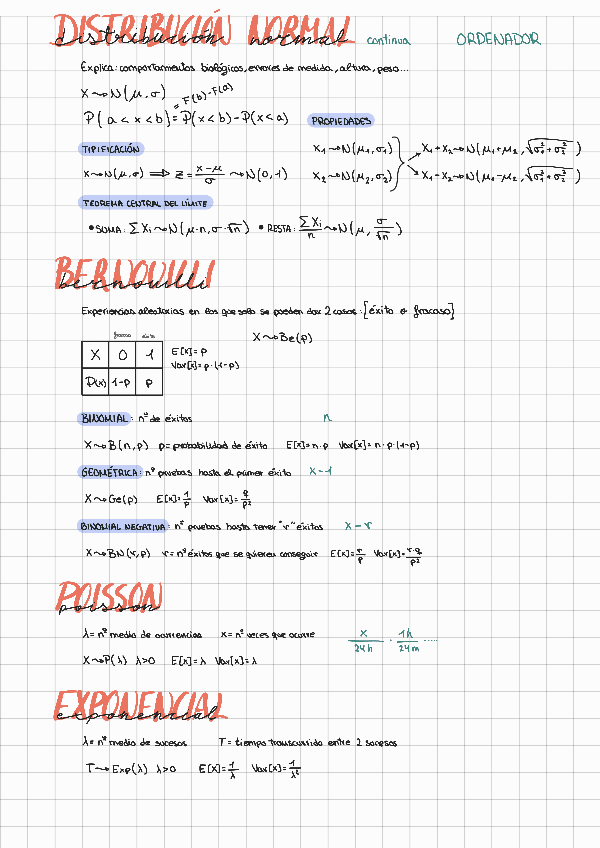 DISTRIBUCIÓN NORMAL
distribución normal continua ORDENADOR
Explica: comportamientos biológicos, errores de medida, altura, peso...
X ⤳ N(μ, σ)
= F(b) - F(a)
P(a < x < b) = P(x < b) - P(x < a)
PROPIEDADES
TIPIFICACIÓN
X₁ ⤳ N(μ₁, σ₁)
X₂ ⤳ N(μ₂, σ₂)
X₁ + X₂ ⤳ N(μ₁ + μ₂, √σ₁² + σ₂²)
X₁ - X₂ ⤳ N(μ₁ - μ₂, √σ₁² + σ₂²)
X ⤳ N(μ, σ) ⟹ Z = (x - μ)/σ ⤳ N(0, 1)
TEOREMA CENTRAL DEL LÍMITE
• SUMA: ΣXi ⤳ N(μ·n, σ·√n) • RESTA: ΣXi/n ⤳ N(μ, σ/√n)
BERNOUILLI
bernouilli
Experiencias aleatorias en las que solo se pueden dar 2 casos: [éxito o fracaso]
X ⤳ Be(p)
fracaso éxito
X 0 1
P(x) 1-p p
E[x] = p
Var[x] = p·(1-p)
BINOMIAL: nº de éxitos n
X ⤳ B(n, p) p = probabilidad de éxito E[x] = n·p Var[x] = n·p·(1-p)
GEOMÉTRICA: nº pruebas hasta el primer éxito X - 1
X ⤳ Ge(p) E[x] = 1/p Var[x] = q/p²
BINOMIAL NEGATIVA: nº pruebas hasta tener "r" éxitos X - r
X ⤳ BN(r, p) r = nº éxitos que se quieren conseguir E[x] = r/p Var[x] = r·q/p²
POISSON
poisson
λ = nº medio de ocurrencias x = nº veces que ocurre x/24h · 1h/24m ......
X ⤳ P(λ) λ>0 E[x] = λ Var[x] = λ
EXPONENCIAL
exponencial
λ = nº medio de sucesos T = tiempo transcurrido entre 2 sucesos
T ⤳ Exp(λ) λ>0 E[X] = 1/λ Var[x] = 1/λ²